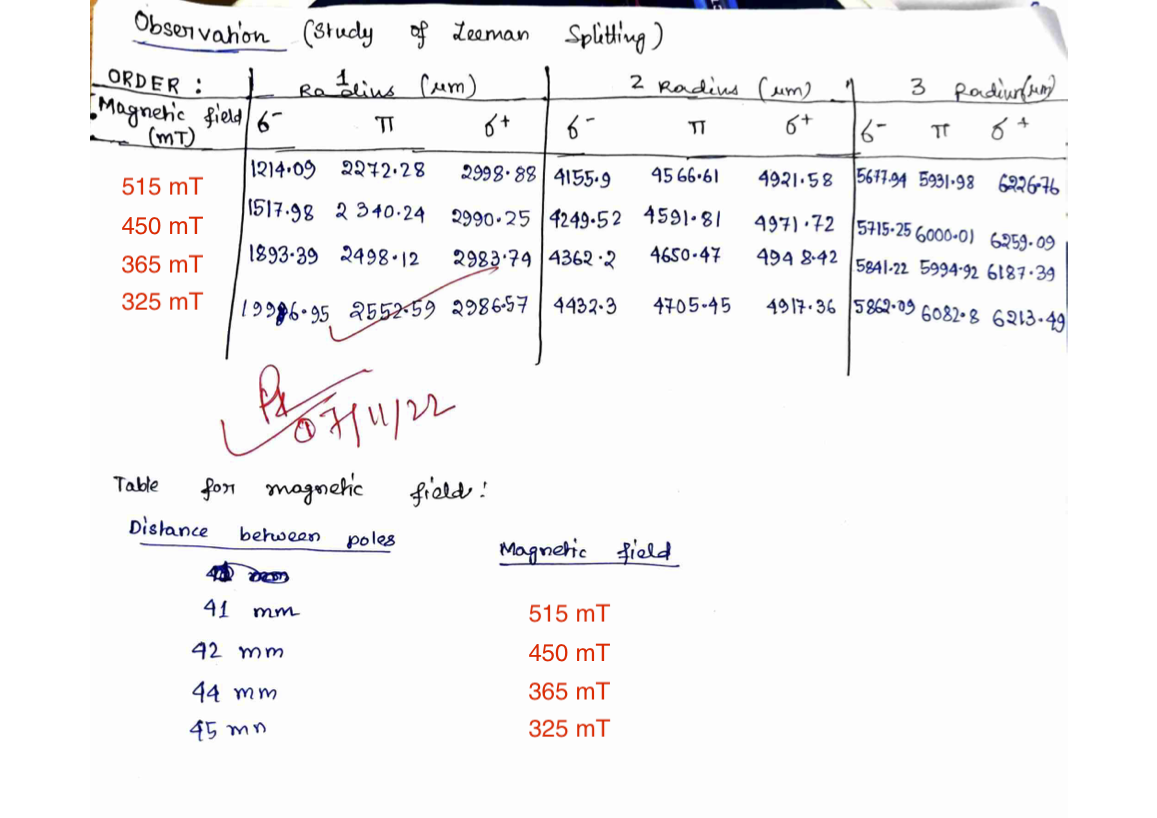 Observation (Study of Zeeman Splitting)
ORDER : 1 Radius (μm) 2 Radius (μm) 3 Radius (μm)
Magnetic field (mT) σ- π σ+ σ- π σ+ σ- π σ+
515 mT 1214.09 2272.28 2998.88 4155.9 4566.61 4921.58 5677.94 5931.98 6226.76
450 mT 1517.98 2340.24 2990.25 4249.52 4591.81 4971.72 5715.25 6000.01 6259.09
365 mT 1893.39 2498.12 2983.74 4362.2 4650.47 4948.42 5841.22 5994.92 6187.39
325 mT 1996.95 2552.59 2986.57 4432.3 4705.45 4917.36 5862.09 6082.8 6213.49
07/11/22
Table for magnetic field :
Distance between poles Magnetic field
41 mm 515 mT
42 mm 450 mT
44 mm 365 mT
45 mn 325 mT